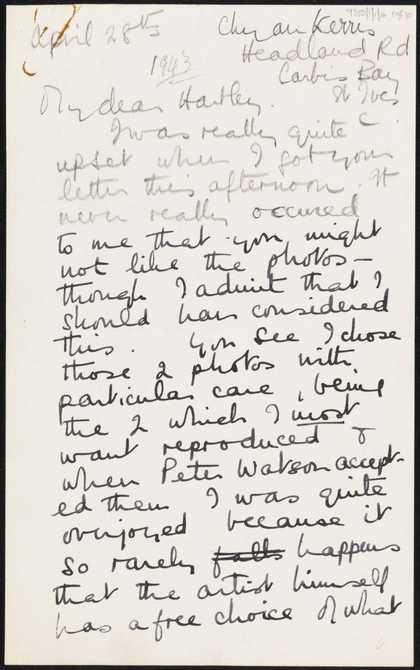 April 28th
Chy an Kerris
Headland Rd
Carbis Bay
1943
St Ives
My dear Hartley.
I was really quite
upset when I got your
letter this afternoon. It
never really occured
to me that you might
not like the photos –
though I admit that I
should have considered
this. You see I chose
those 2 photos with
particular care, being
the 2 which I most
want reproduced &
when Peter Watson accept-
ed them I was quite
overjoyed because it
so rarely falls happens
that the artist himself
has a free choice of what